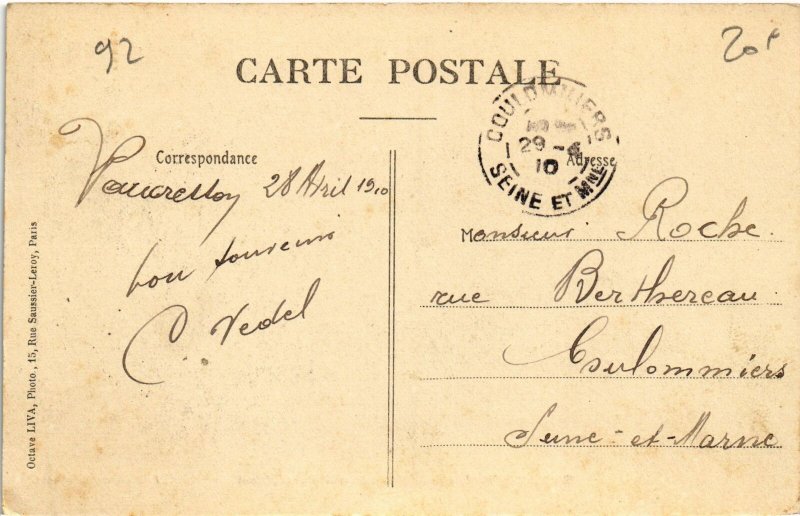 92
20f
CARTE POSTALE
COULOMMIERS
29 -4
10
SEINE ET MNE
Correspondance
Adresse
Vaucresson 28 Avril 1910
bon souvenir
C. Vedel
Monsieur Roche.
rue Berthereau
Coulommiers
Seine-et-Marne
Octave LIVA, Photo., 15, Rue Saussier-Leroy, Paris